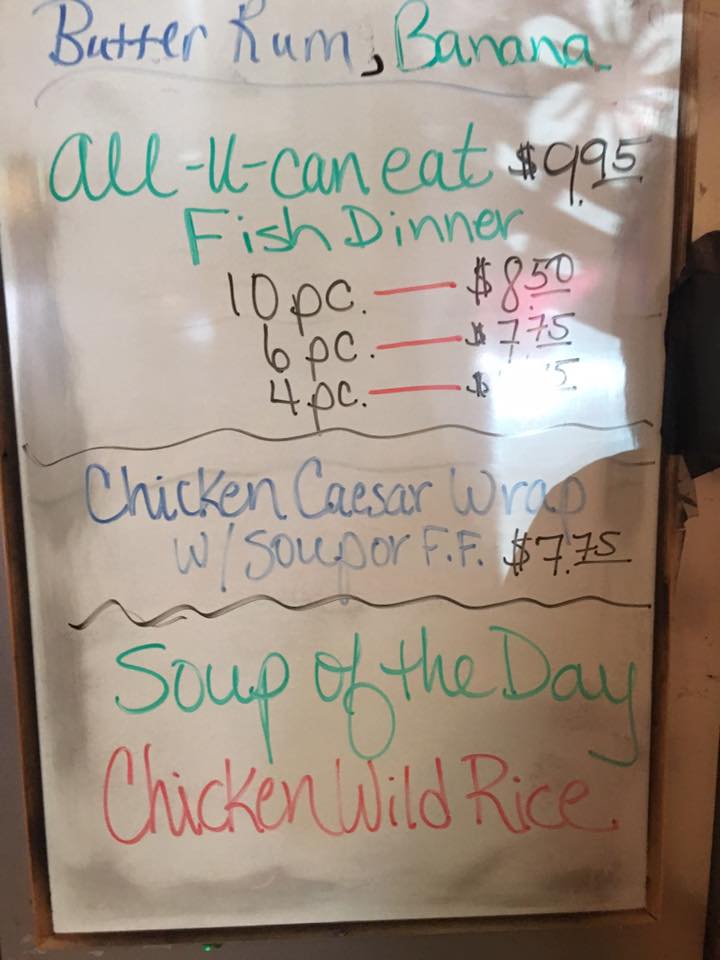 Butter Rum, Banana
All-U-can eat $9.95
Fish Dinner
10 pc. — $8.50
6 pc. — $7.75
4 pc. — $
Chicken Caesar Wrap
w/ Soup or F.F. $7.75
Soup of the Day
Chicken Wild Rice